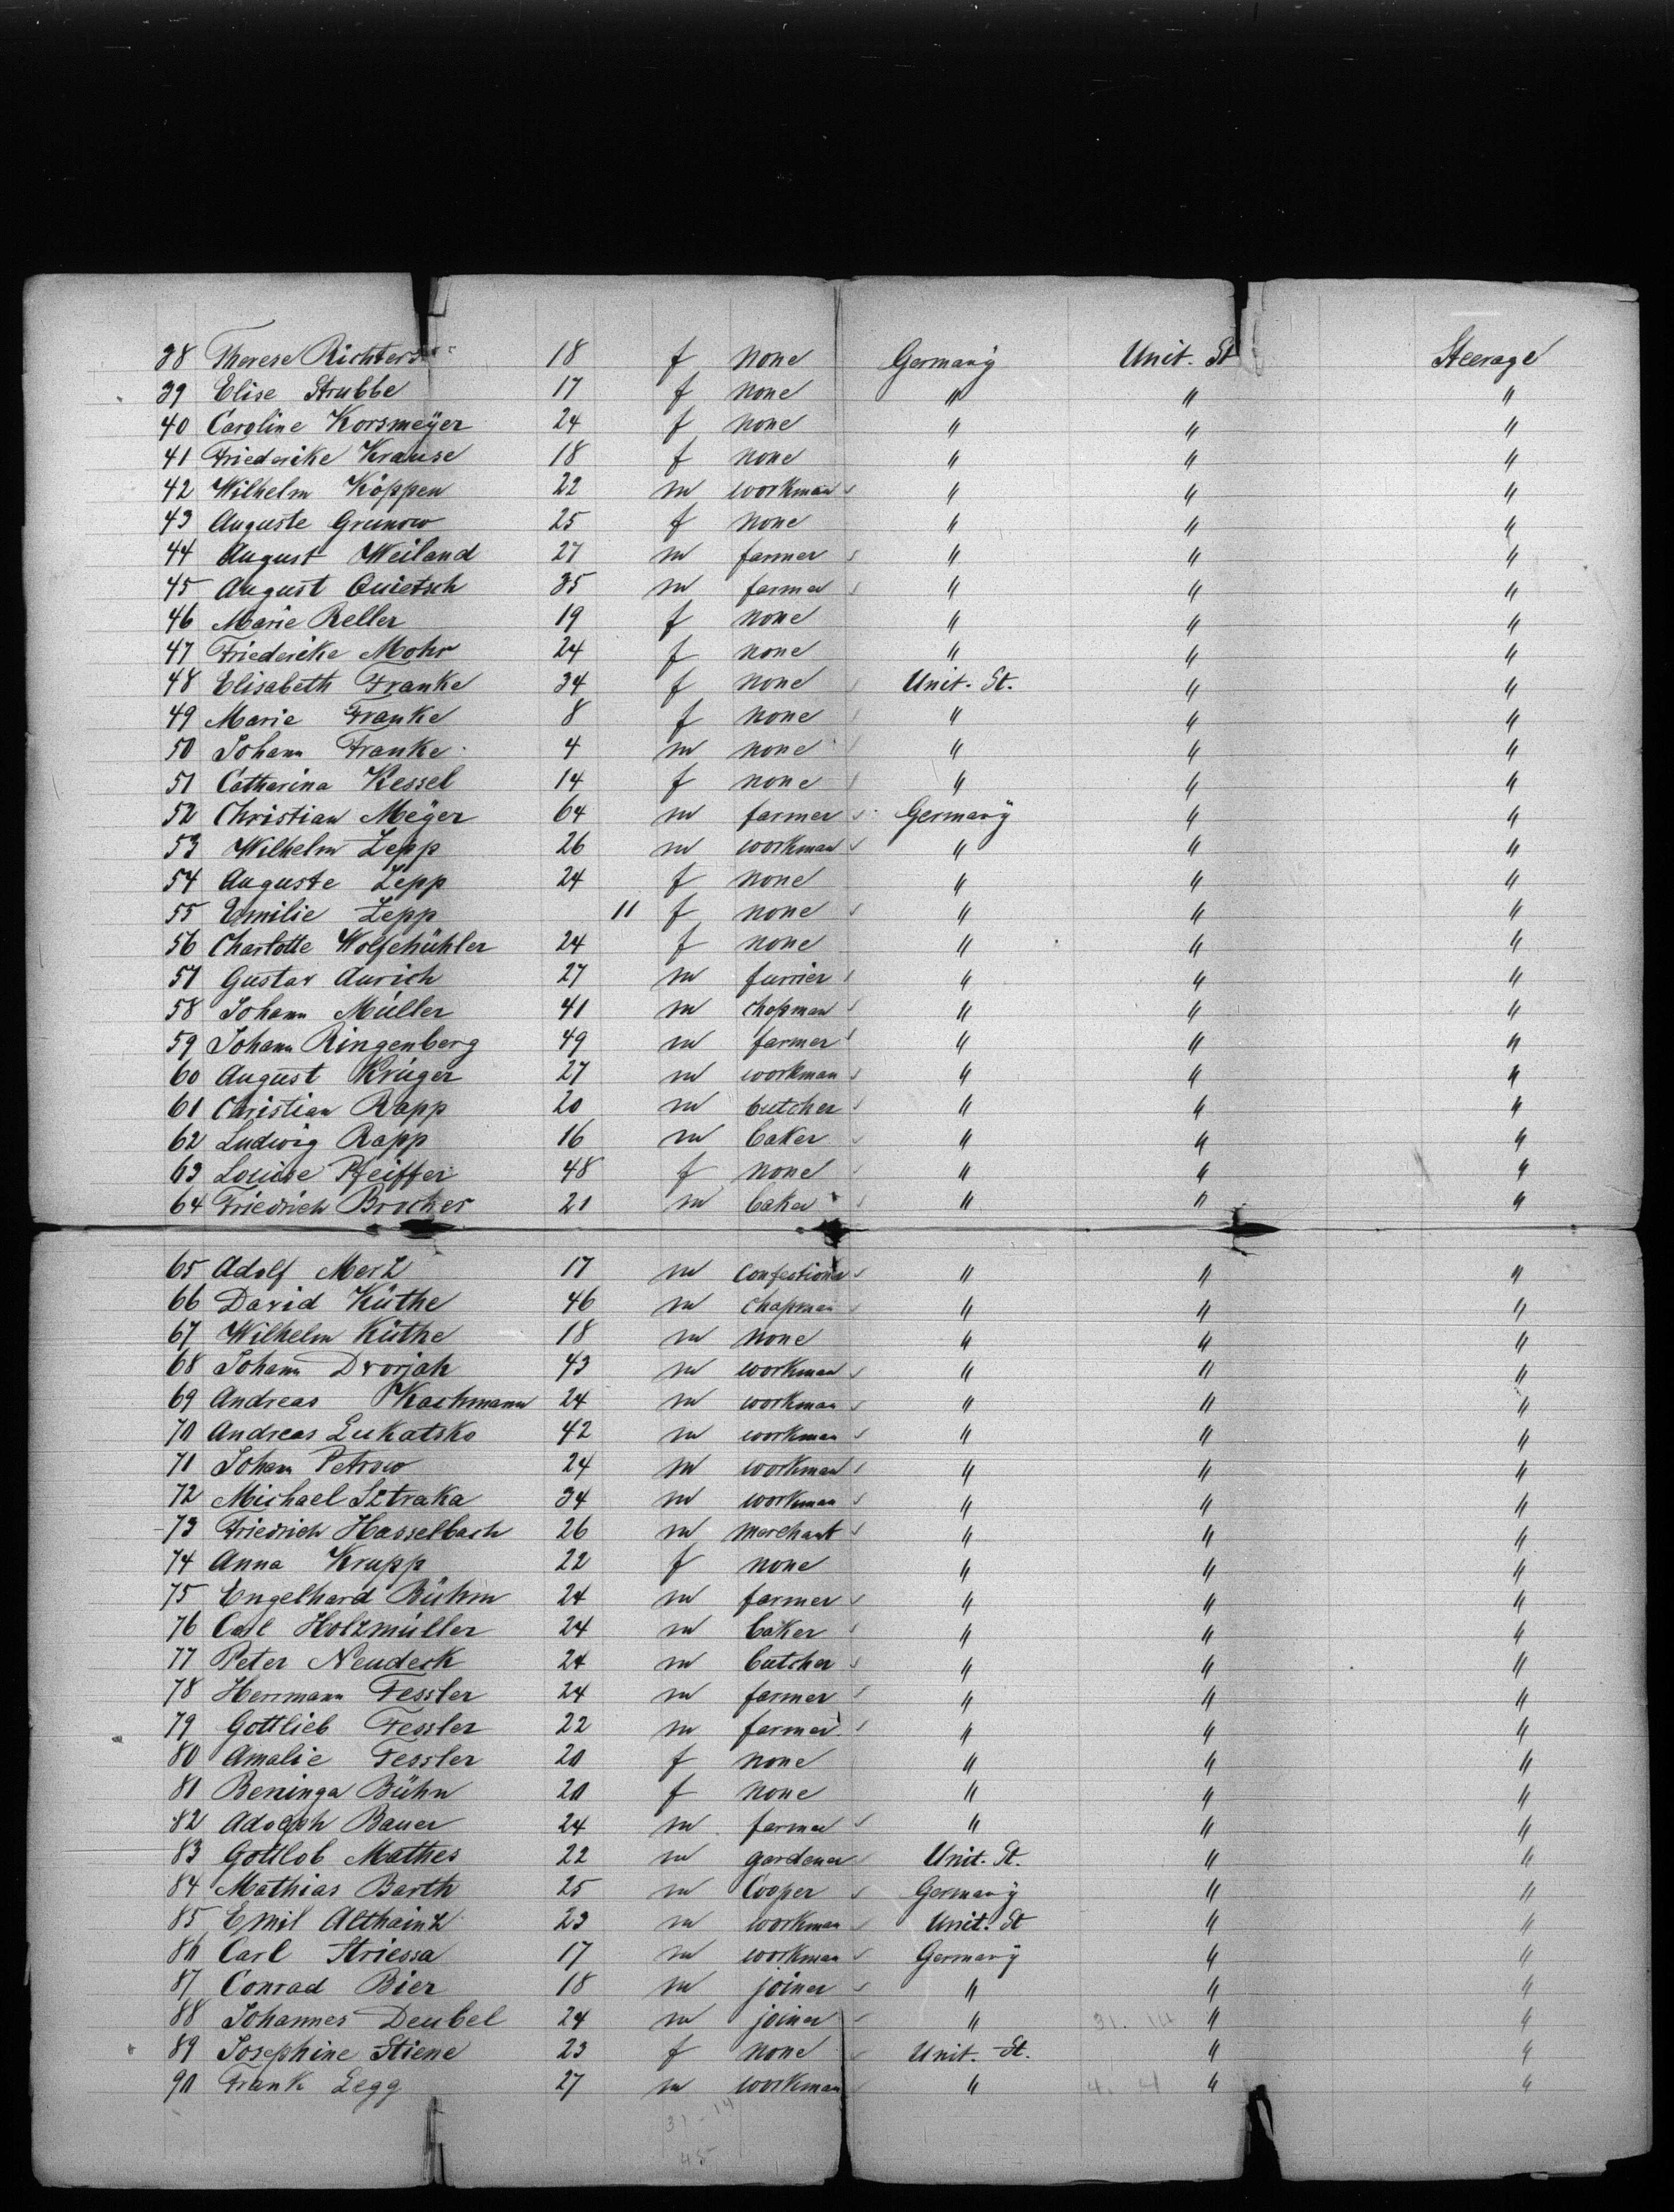 38 Therese Richters 18 f none Germany Unit. St Steerage
39 Elise Strubbe 17 f none " " "
40 Caroline Korsmeÿer 24 f none " " "
41 Friederike Krause 18 f none " " "
42 Wilhelm Köppen 22 m workman " " "
43 Auguste Grunow 25 f none " " "
44 August Weiland 27 m farmer " " "
45 August Quietsch 35 m farmer " " "
46 Marie Reller 19 f none " " "
47 Friederike Mohr 24 f none " " "
48 Elisabeth Franke 34 f none Unit. St. " "
49 Marie Franke 8 f none " " "
50 Johann Franke 4 m none " " "
51 Catharina Kessel 14 f none " " "
52 Christian Meÿer 64 m farmer Germany " "
53 Wilhelm Zepp 26 m workman " " "
54 Auguste Zepp 24 f none " " "
55 Emilie Zepp 11 f none " " "
56 Charlotte Wolfehühler 24 f none " " "
57 Gustav Aurich 27 m furrier " " "
58 Johann Müller 41 m chapman " " "
59 Johann Ringenberg 49 m farmer " " "
60 August Krüger 27 m workman " " "
61 Christian Rapp 20 m butcher " " "
62 Ludwig Rapp 16 m baker " " "
63 Louise Pfeiffer 48 f none " " "
64 Friedrich Brocker 21 m baker " " "
65 Adolf Merz 17 m Confectioner " " "
66 David Küthe 46 m chapman " " "
67 Wilhelm Küthe 18 m none " " "
68 Johann Dvorjak 43 m workman " " "
69 Andreas Kachmann 24 m workman " " "
70 Andreas Lukatsko 42 m workman " " "
71 Johann Petrow 24 m workman " " "
72 Michael Sztraka 34 m workman " " "
73 Friedrich Hasselbach 26 m merchant " " "
74 Anna Krupp 22 f none " " "
75 Engelhard Bühm 24 m farmer " " "
76 Carl Holzmüller 24 m baker " " "
77 Peter Neudeck 24 m butcher " " "
78 Herrmann Fessler 24 m farmer " " "
79 Gottlieb Fessler 22 m farmer " " "
80 Amalie Fessler 20 f none " " "
81 Beninga Bühn 20 f none " " "
82 Adolph Bauer 24 m farmer " " "
83 Gottlob Mathes 22 m gardener Unit. St. " "
84 Mathias Barth 25 m Cooper Germany " "
85 Emil Althainz 23 m workman Unit. St " "
86 Carl Striessa 17 m workman Germany " "
87 Conrad Bier 18 m joiner " " "
88 Johannes Deubel 24 m joiner " 31. 14 " "
89 Josephine Stiene 23 f none Unit. St. " "
90 Frank Legg 27 m workman " 4. 4 " "
31-14
45